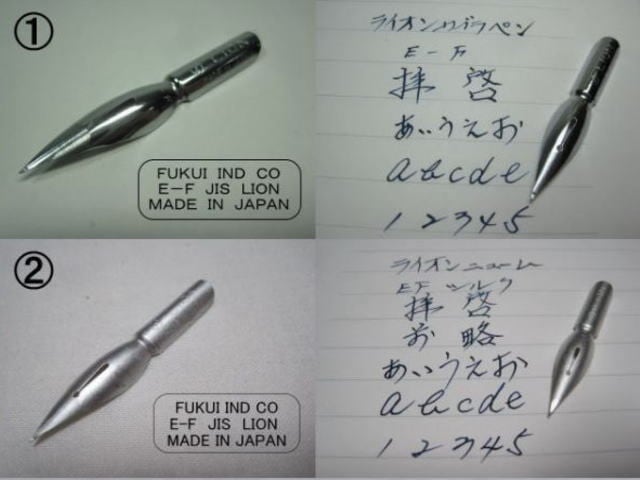 ①
FUKUI IND CO
E-F JIS LION
MADE IN JAPAN
ライオンカブラペン
E-F
拝啓
あいうえお
abcde
12345
②
FUKUI IND CO
E-F JIS LION
MADE IN JAPAN
ライオンニューム
EF シルク
拝啓
前略
あいうえお
abcde
12345